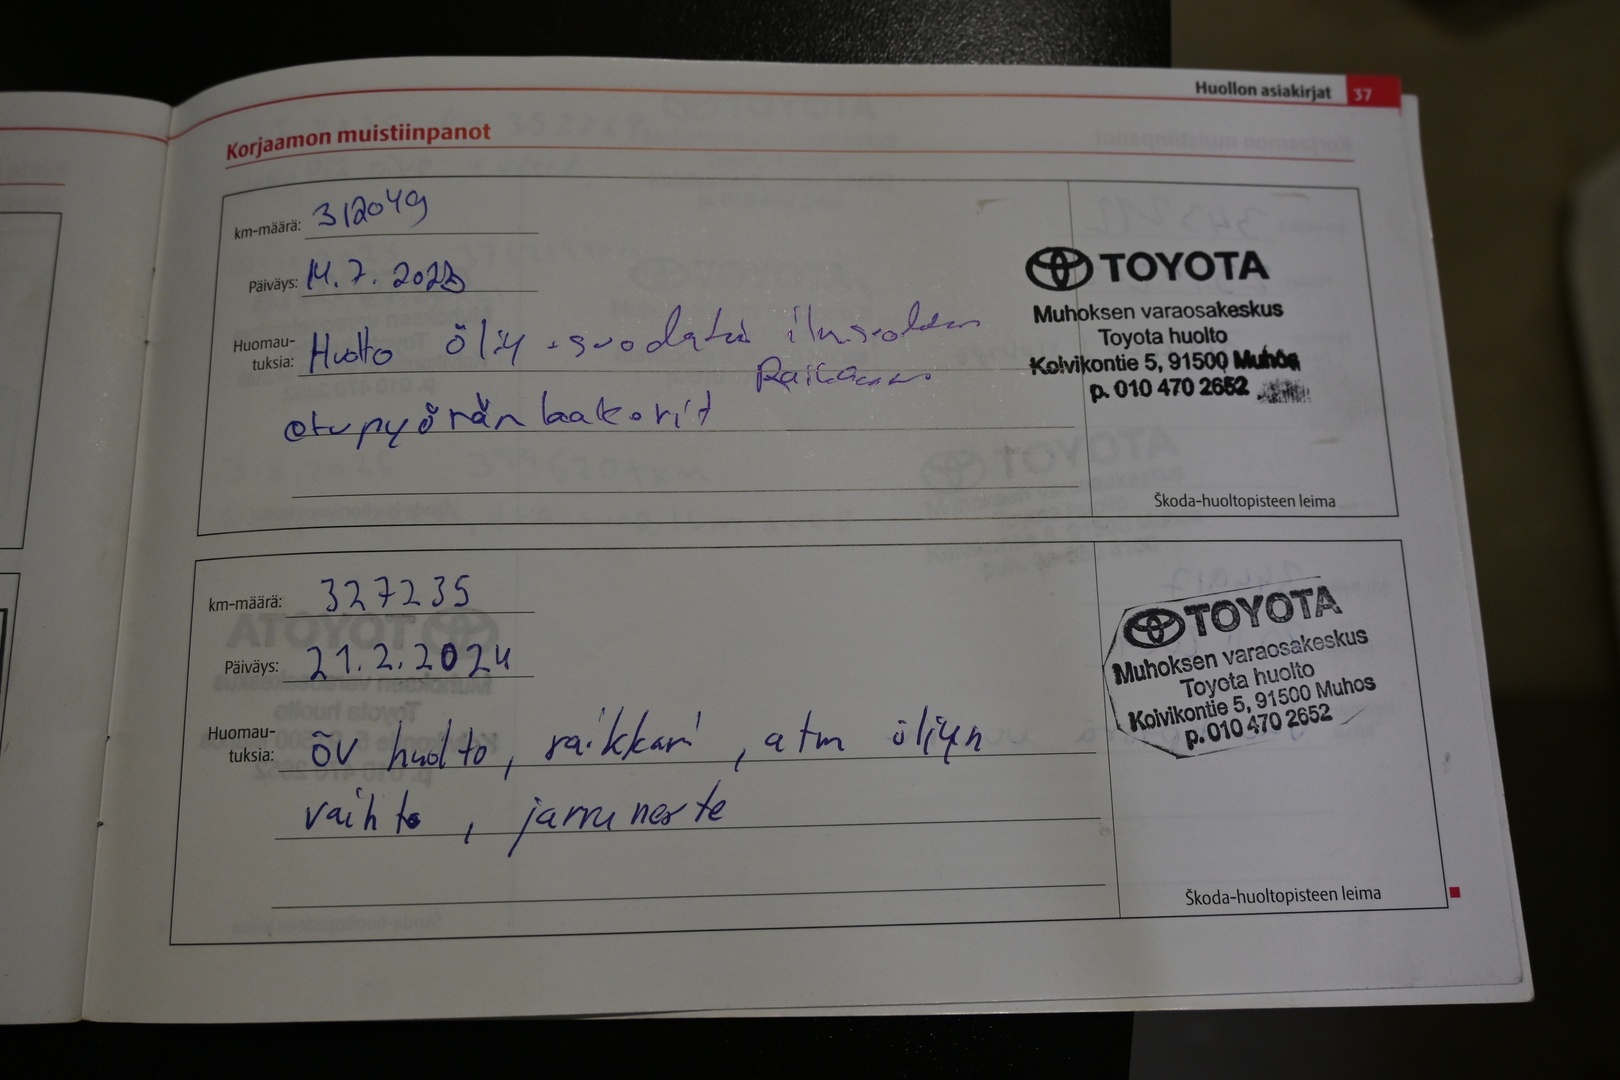 Huollon asiakirjat 37
Korjaamon muistiinpanot
km-määrä: 312049
Päiväys: 14.7.2023
Huomau-
tuksia: Huolto öljy + suodatin
Raikas
etupyörän laakerit
TOYOTA
Muhoksen varaosakeskus
Toyota huolto
Koivikontie 5, 91500 Muhos
p. 010 470 2652
Škoda-huoltopisteen leima
km-määrä: 327235
Päiväys: 21.2.2024
Huomau-
tuksia: öv huolto, raikkari, atm öljyn
vaihto, jarruneste
TOYOTA
Muhoksen varaosakeskus
Toyota huolto
Koivikontie 5, 91500 Muhos
p. 010 470 2652
Škoda-huoltopisteen leima